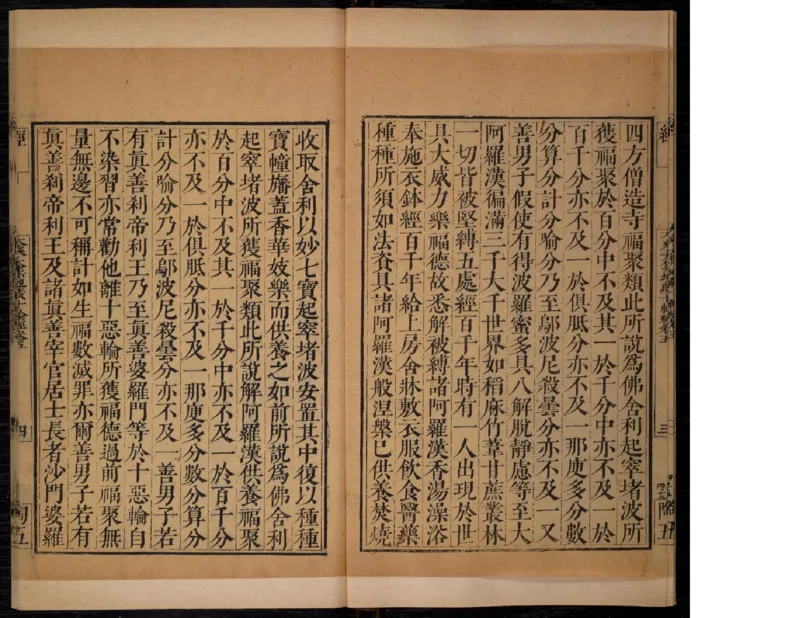 經
三
四方僧造寺福聚類此所說爲佛舍利起窣堵波所
獲福聚於百分中不及其一於千分中亦不及一於
百千分亦不及一於俱胝分亦不及一那庾多分數
分算分計分喻分乃至鄔波尼殺曇分亦不及一又
善男子假使有得波羅蜜多具八解脫靜慮等至大
阿羅漢徧滿三千大千世界如稻麻竹葦甘蔗叢林
一切皆被堅縛五處經百千年時有一人出現於世
具大威力樂福德故悉解被縛諸阿羅漢香湯澡浴
奉施衣鉢經百千年給上房舍牀敷衣服飲食醫藥
種種所須如法養具諸阿羅漢般涅槃已供養焚燒
收取舍利以妙七寶起窣堵波安置其中復以種種
寶幢旛蓋香華妓樂而供養之如前所說爲佛舍利
起窣堵波所獲福聚類此所說解阿羅漢供養福聚
於百分中不及其一於千分中亦不及一於百千分
亦不及一於俱胝分亦不及一那庾多分數分算分
計分喻分乃至鄔波尼殺曇分亦不及一善男子若
有眞善刹帝利王乃至眞善婆羅門等於十惡輪自
不染習亦常勸他離十惡輪所獲福德過前福聚無
量無邊不可稱計如生福數滅罪亦爾善男子若有
眞善刹帝利王及諸眞善宰官居士長者沙門婆羅
經
四